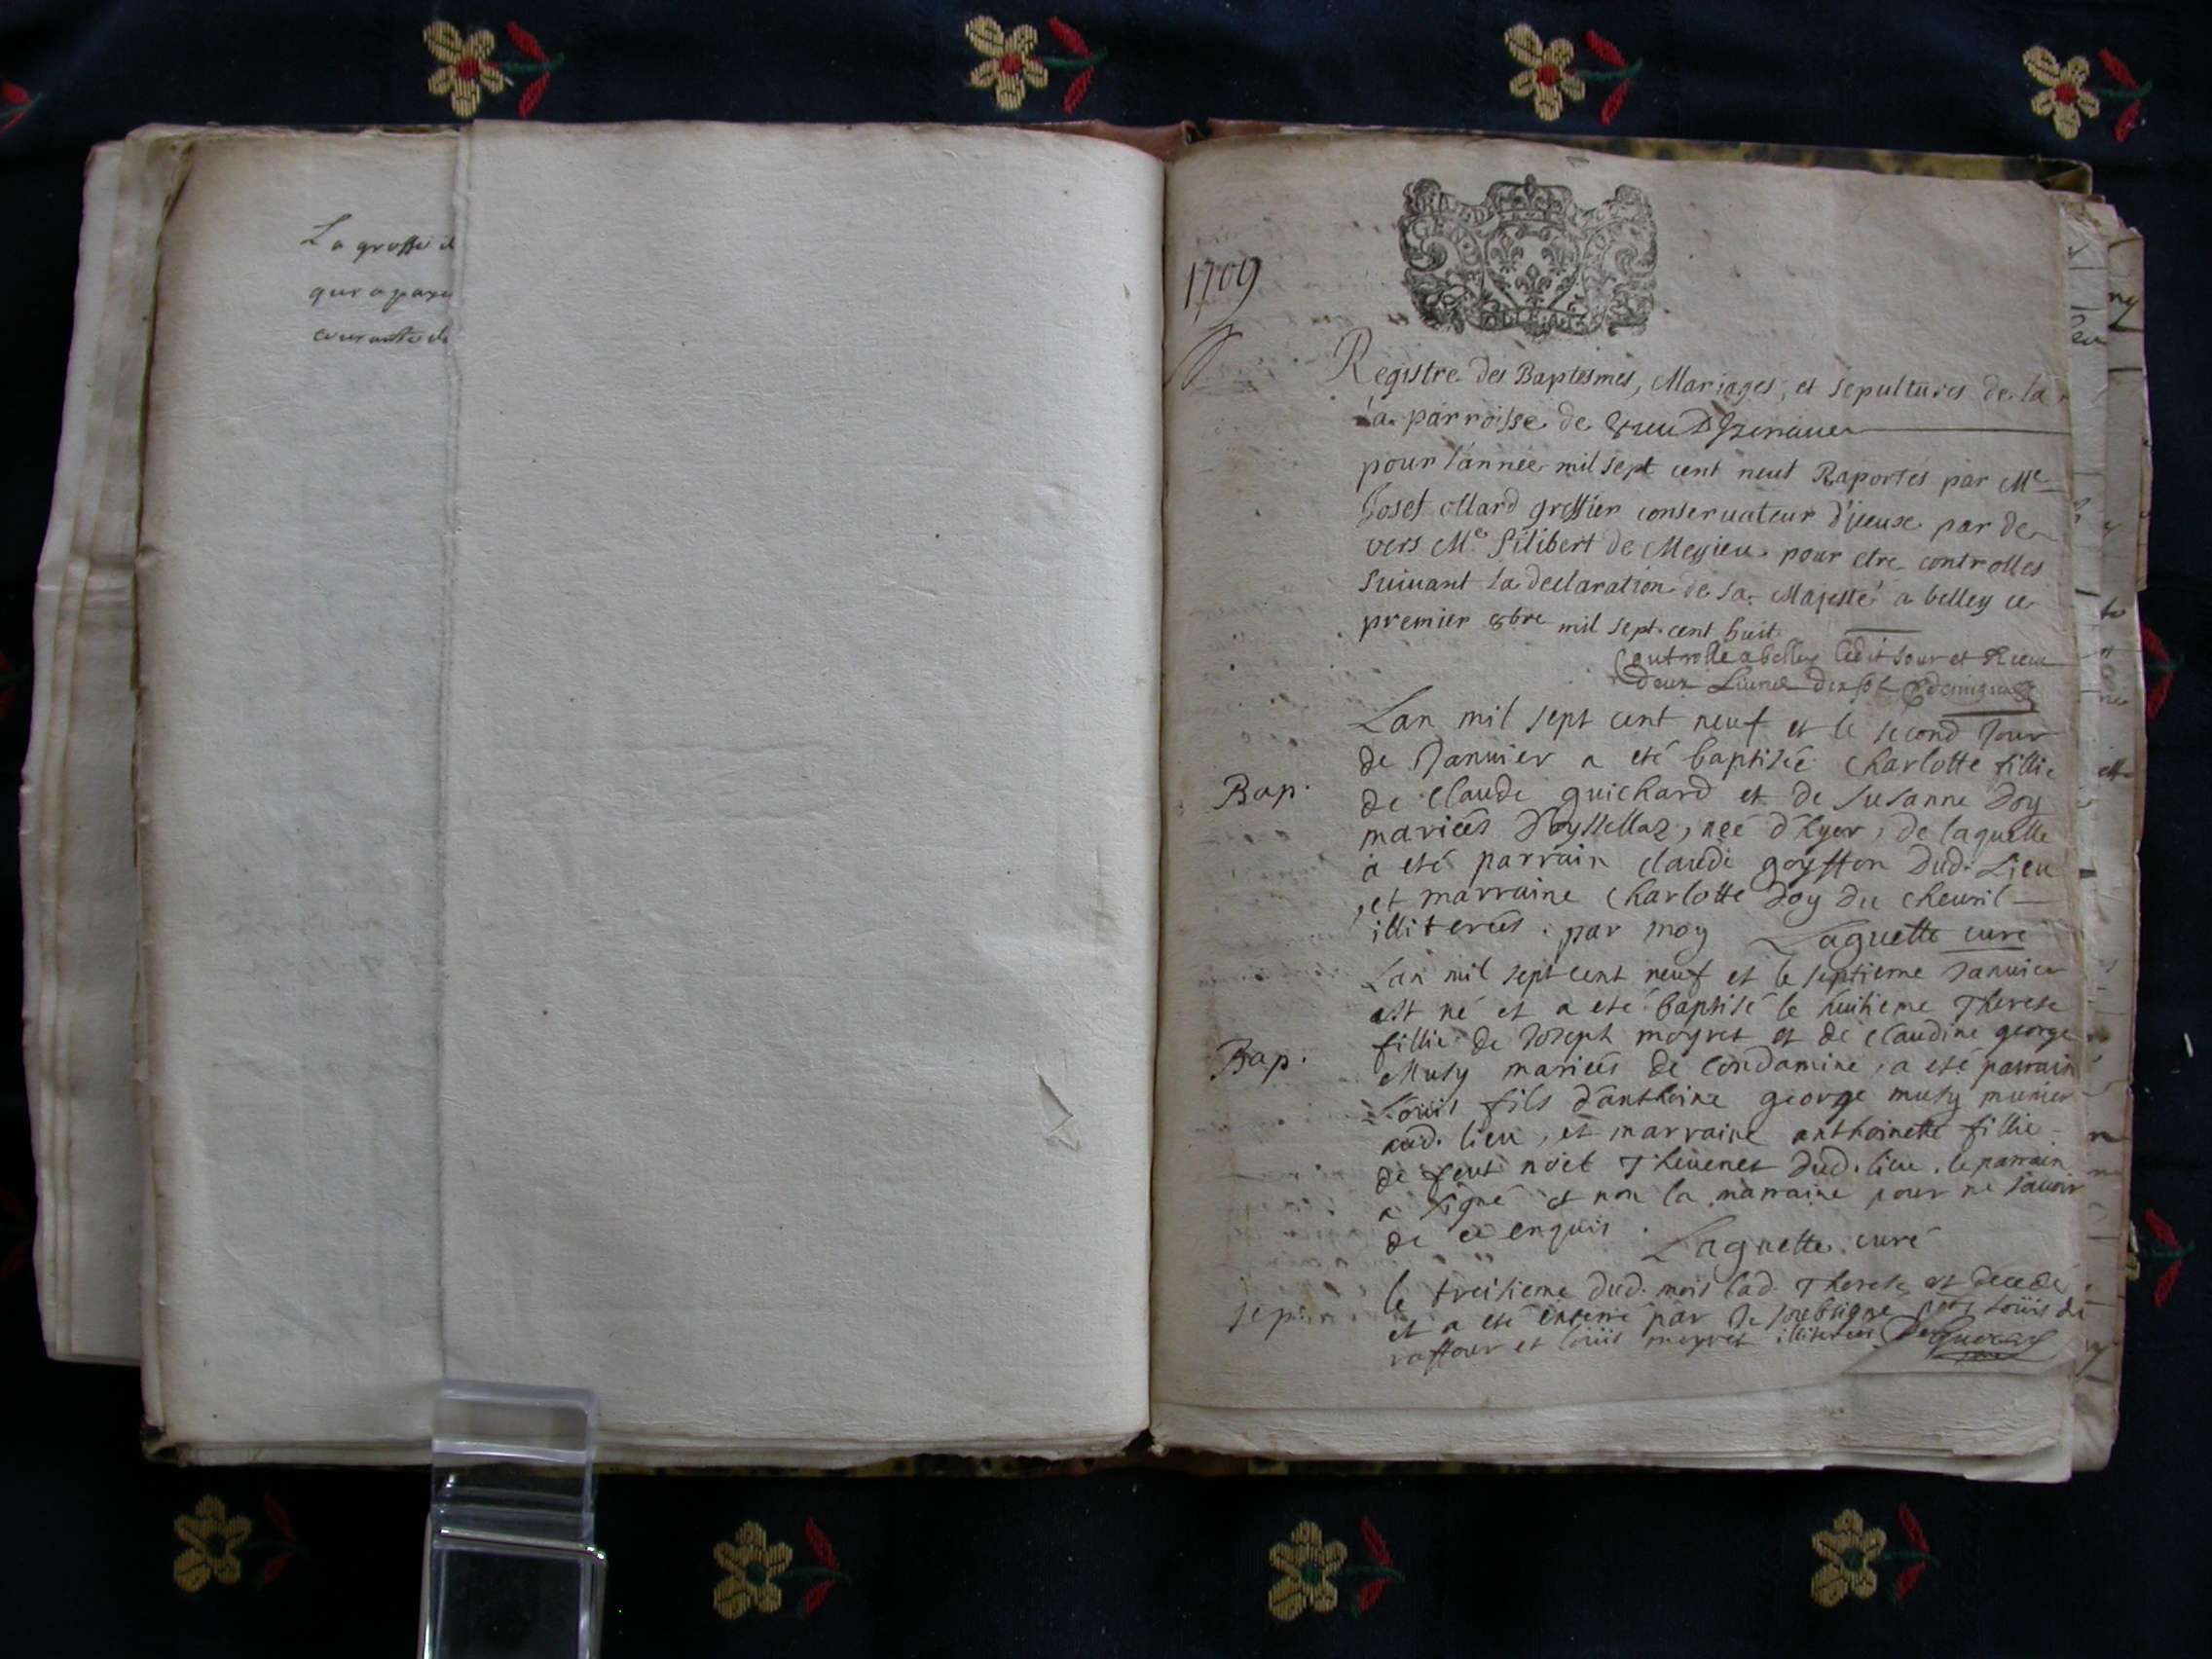 La grosse d
qui a paye
courante de
1709
Registre des Baptesmes, Mariages, et sepultures de la
la parroisse de Vieu D Izenave
pour l'année mil sept cent neuf Raportés par Me
Josef Mard greffier conservateur d'iceux par de
vers Me filibert de Messieu pour etre controlles
suivant la declaration de sa Majesté a belley ce
premier 8bre mil sept cent huit
Controlle a belley ledit Jour et Receu
deux Livres dix sols
Lan mil sept cent neuf et le second Jour
de Janvier a eté baptisée Charlotte fillie
Bap.
de Claude guichard et de Susanne Doy
mariées née d'hyer, de laquelle
a eté parrain claude goyffon dud. Lieu
et marraine Charlotte Doy du Chevril
illiterées. par moy Laguette curé
Lan mil sept cent neuf et le septieme Janvier
est né et a eté baptisé le huitieme Therese
Bap.
fillie de Joseph moyret et de Claudine george
Musy mariées de Condamine, a eté parrain
Loüis fils d'anthoine george musy munier
aud. lieu, et marraine anthoinette fillie
de feut noël Thevenet dud. lieu. le parrain
a signé et non la marraine pour ne savoir
de ce enquis.
Laguette. curé
Sepu
le treisieme dud. mois lad. Therese est decedé
et a eté enterré par Je soubsigné Loüis de
raffour et Loüis moyret illiterées